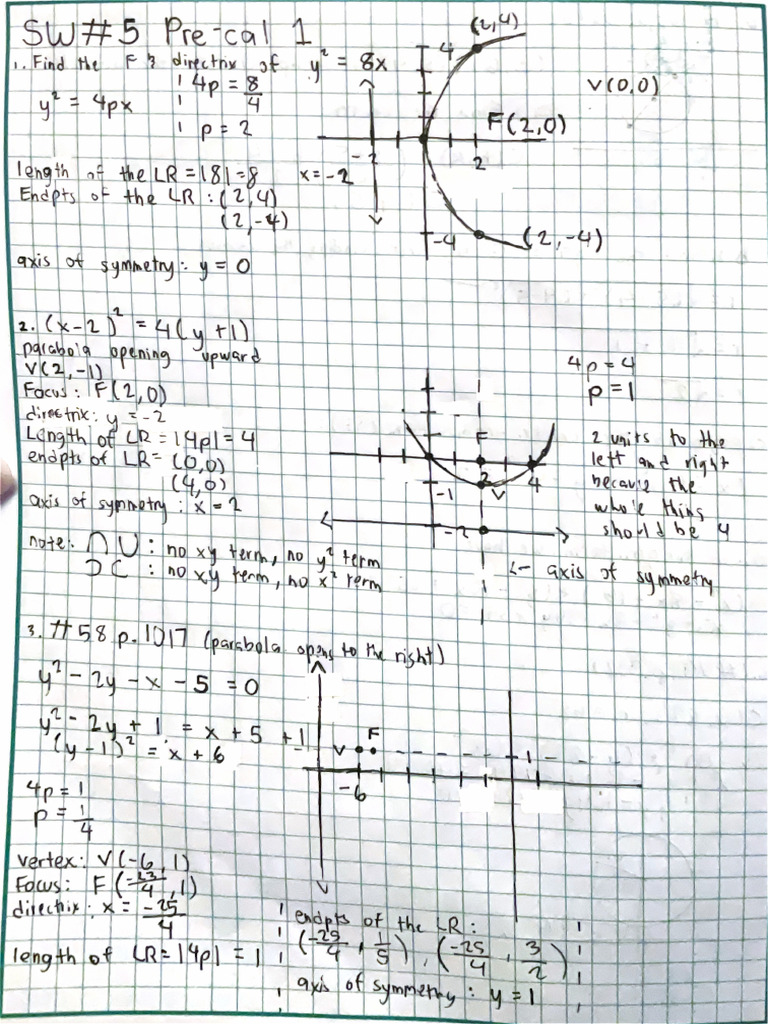 SW#5 Pre-cal 1
1. Find the F & directrix of y² = 8x
y² = 4px
4p = 8/4
p = 2
length of the LR = |8| = 8
Endpts of the LR : (2,4)
(2,-4)
axis of symmetry: y = 0
(2,4)
4
V(0,0)
F(2,0)
-2
2
x = -2
-4
(2,-4)
2. (x-2)² = 4(y+1)
parabola opening upward
V(2,-1)
Focus: F(2,0)
directrix: y = -2
Length of LR = |4p| = 4
endpts of LR = (0,0)
(4,0)
axis of symmetry: x = 2
note: ∩ ∪ : no xy term, no y² term
⊃ ⊂ : no xy term, no x² term
4p = 4
p = 1
F
2
4
-1
V
-2
2 units to the
left and right
because the
whole thing
should be 4
<- axis of symmetry
3. #58 p. 1017 (parabola opens to the right)
y² - 2y - x - 5 = 0
y² - 2y + 1 = x + 5 + 1
(y-1)² = x + 6
4p = 1
p = 1/4
V
F
1
-6
vertex: V(-6,1)
Focus: F(-23/4, 1)
directrix: x = -25/4
length of LR = |4p| = 1
endpts of the LR:
(-25/4, 1/5), (-25/4, 3/2)
axis of symmetry: y = 1